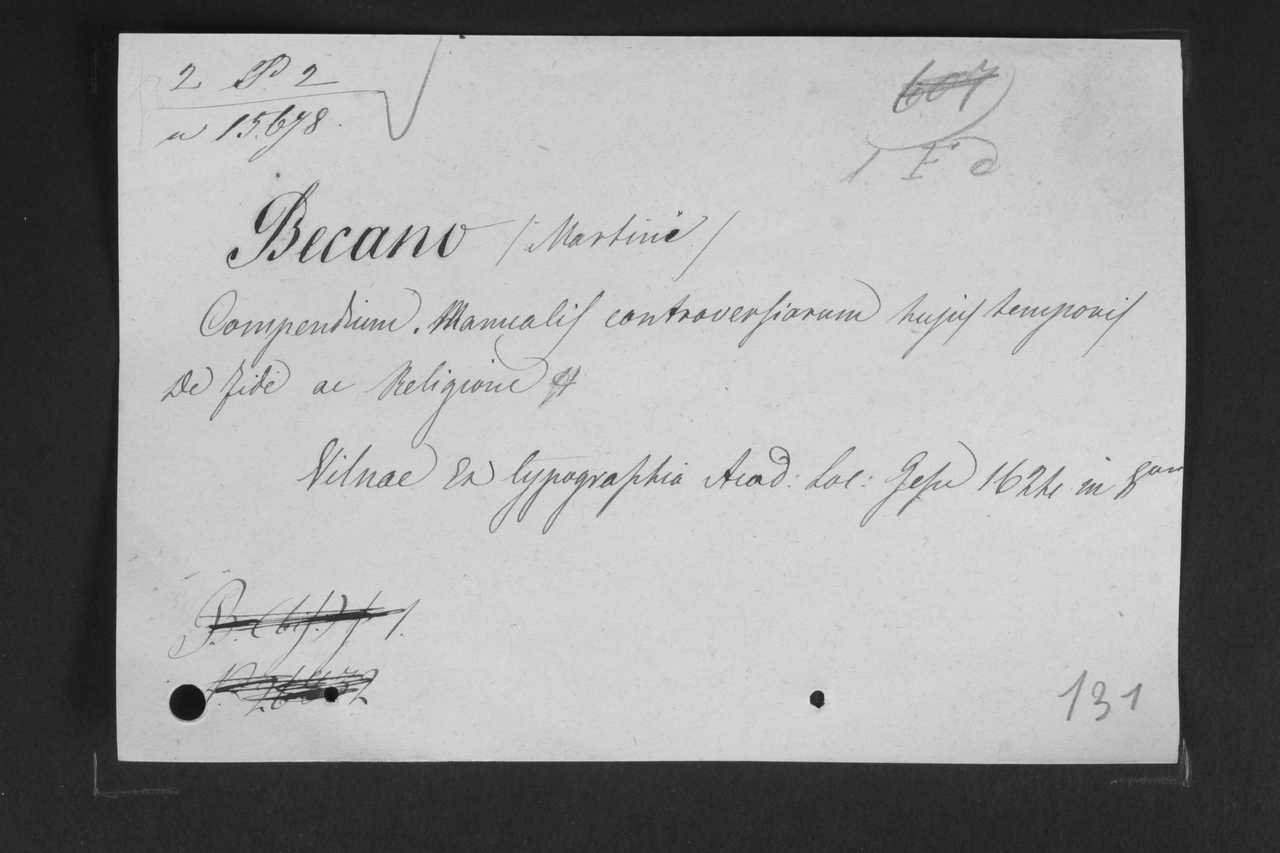 2 P 2
n 15.678.
607
1 F d
Becano (Martini)
Compendium Manualis controversiarum hujus temporis
De fide ac Religione
Vilnae Ex typographia Acad: Soc: Jesu 1624 in 8
P. (bis) 1.
131